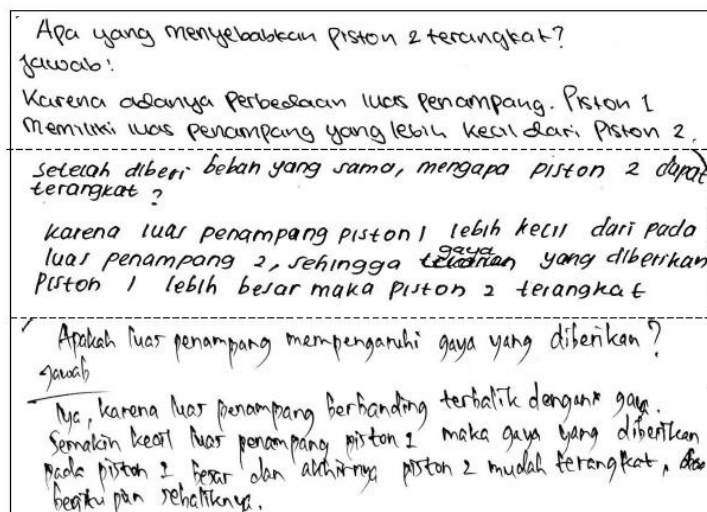 Apa yang menyebabkan piston 2 terangkat?
Jawab:
Karena adanya perbedaan luas penampang. Piston 1
memiliki luas penampang yang lebih kecil dari piston 2.
Setelah diberi beban yang sama, mengapa piston 2 dapat
terangkat?
Karena luas penampang piston 1 lebih kecil dari pada
luas penampang 2, sehingga gaya yang diberikan
piston 1 lebih besar maka piston 2 terangkat
Apakah luas penampang mempengaruhi gaya yang diberikan?
Jawab
Iya, karena luas penampang berbanding terbalik dengan gaya.
Semakin kecil luas penampang piston 1 maka gaya yang diberikan
pada piston 1 besar dan akhirnya piston 2 mudah terangkat,
begitu pun sebaliknya.